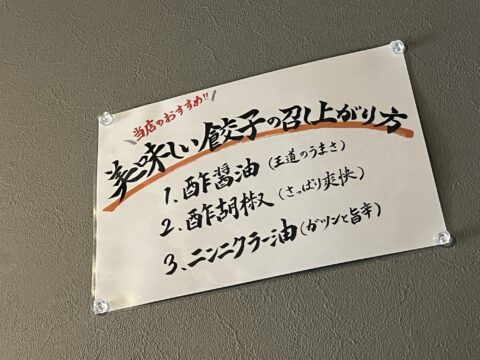 当店のおすすめ!!
美味しい餃子の召し上がり方
1.酢醤油(王道のうまさ)
2.酢胡椒(さっぱり爽快)
3.ニンニクラー油(ガツンと旨辛)